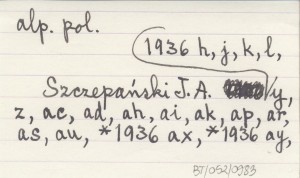 alp. pol.
1936 h, j, k, l,
Szczepański J. A. y,
z, ac, ad, ah, ai, ak, ap, ar,
as, au, *1936 ax, *1936 ay,
B7/052/0983